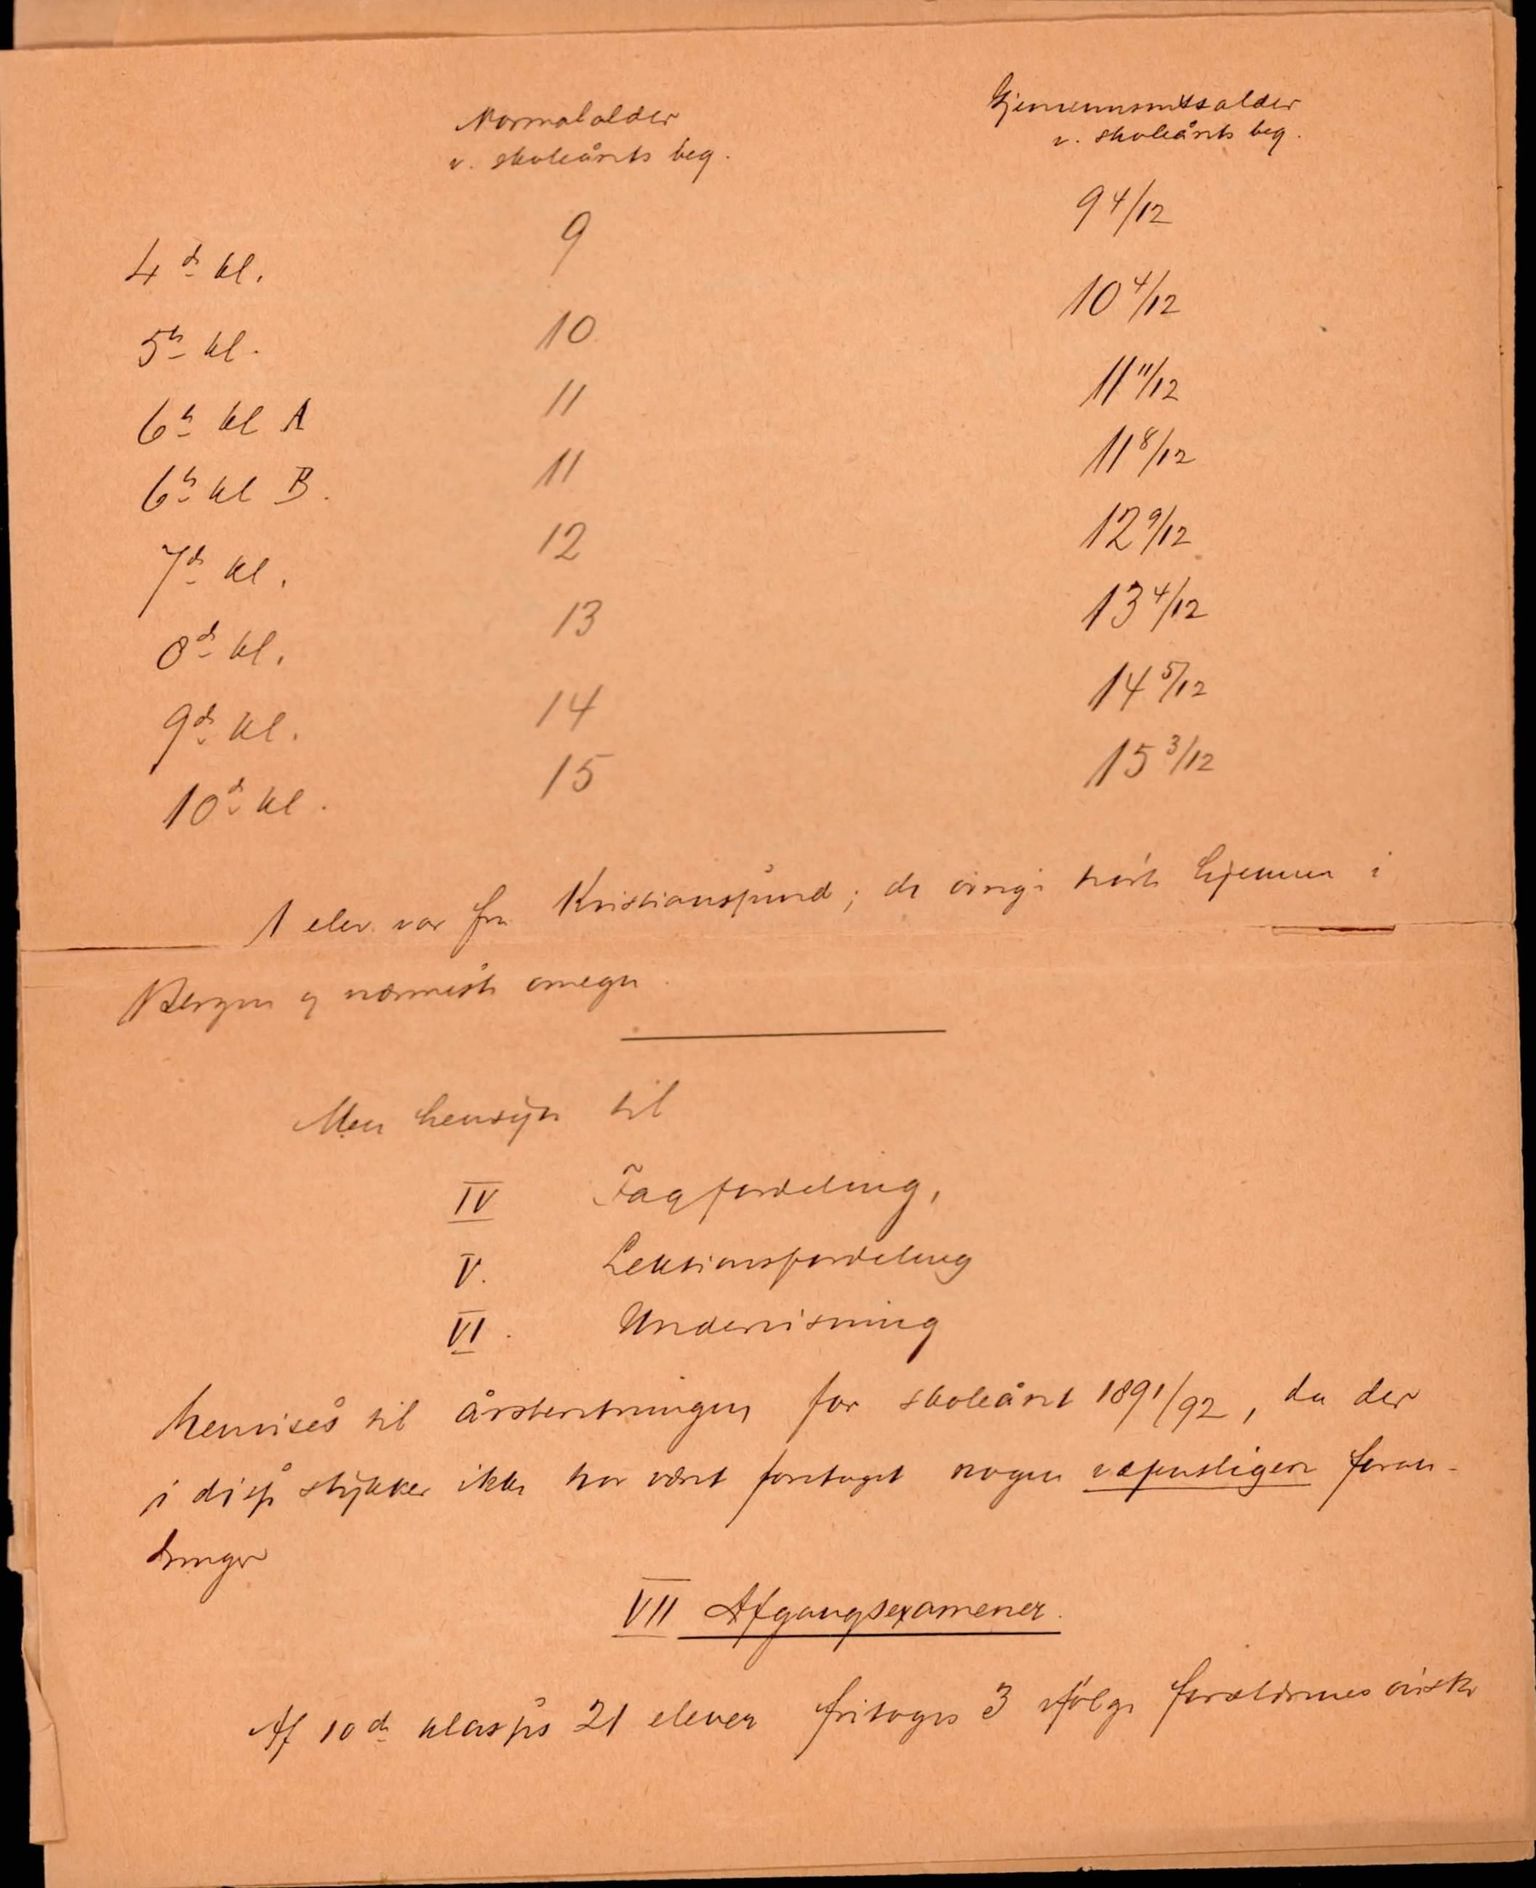 Normalalder Gjennemsnitsalder
v. skoleårets beg. v. skoleårets beg.
4de kl. 9 9 4/12
5te kl. 10 10 4/12
6te kl A 11 11 11/12
6te kl B. 11 11 8/12
7de kl. 12 12 9/12
8de kl. 13 13 4/12
9de kl. 14 14 5/12
10de kl. 15 15 3/12
1 elev var fra Kristianssund; de øvrige hørte hjemme i
Bergen og nærmeste omegn.
Med hensyn til
IV Fagfordeling,
V. Lektionsfordeling
VI. Undervisning
henvises til årsberetningen for skoleåret 1891/92, da der
i disse stykker ikke har været foretaget nogen væsentligere foran-
dringer
VII Afgangsexamener.
Af 10de klasses 21 elever fritoges 3 ifølge forældrenes ønske